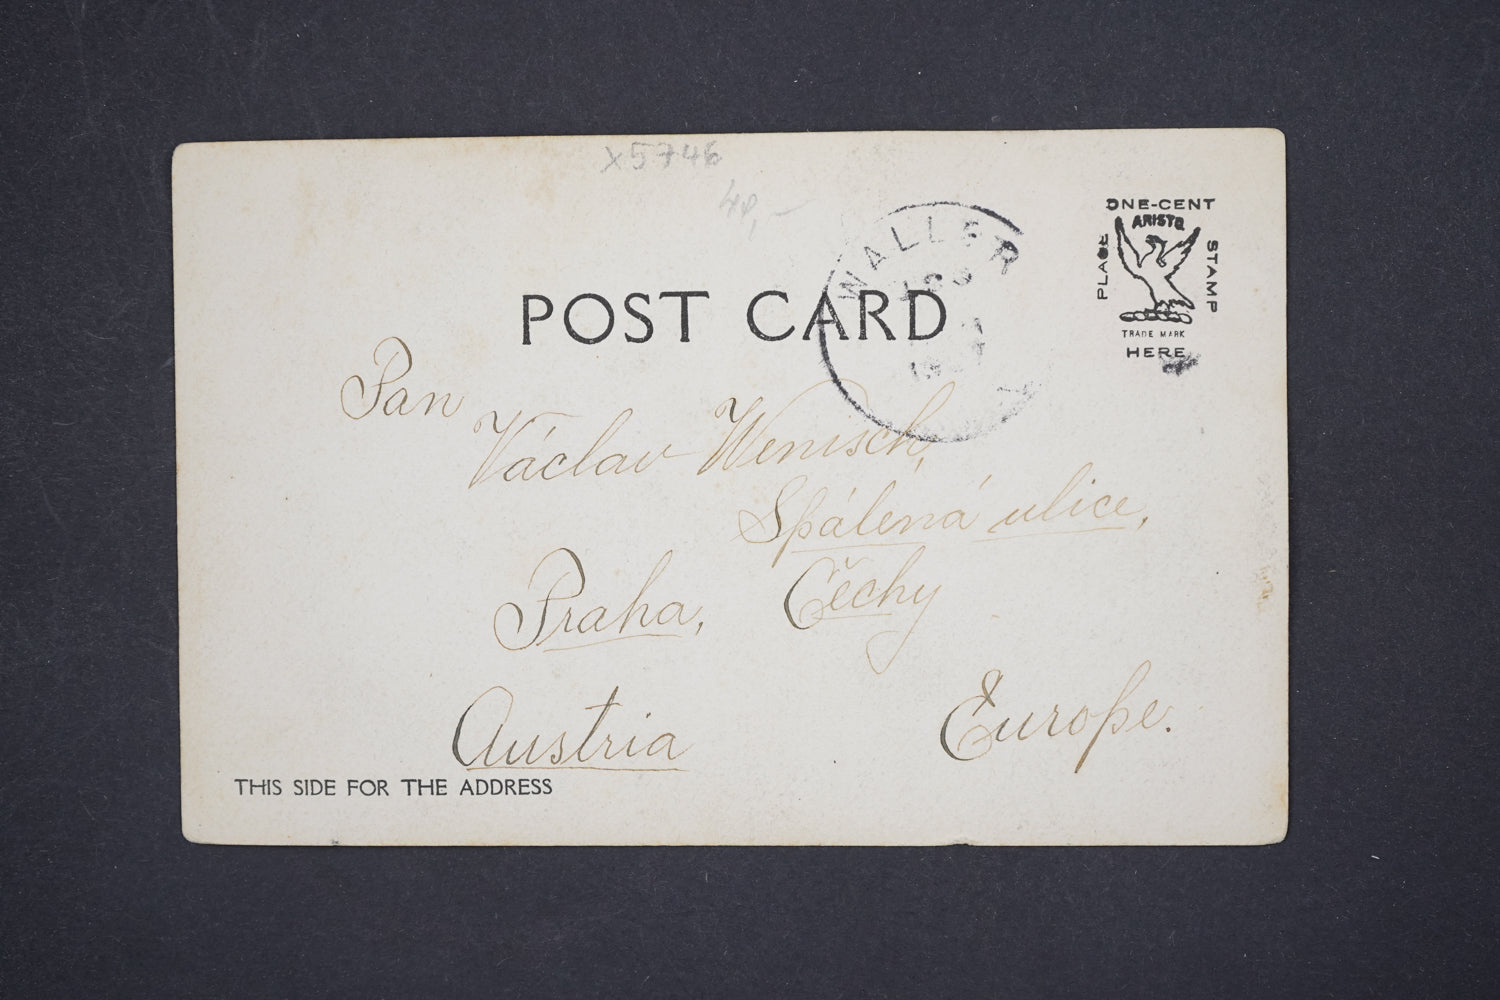 X5746
40,-
WALLER
POST CARD
ONE-CENT
ARISTO
PLACE
STAMP
TRADE MARK
HERE
Pan
Václav Wenisch,
Spálená ulice,
Praha, Čechy
Austria Europe.
THIS SIDE FOR THE ADDRESS